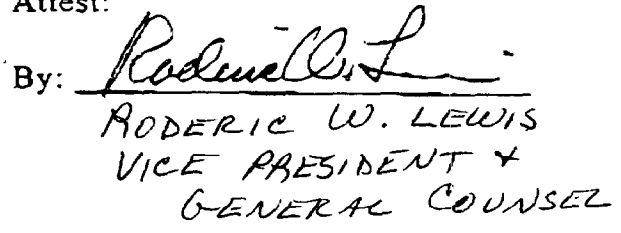 Attest:
By: Roderic W. Lewis
RODERIC W. LEWIS
VICE PRESIDENT &
GENERAL COUNSEL